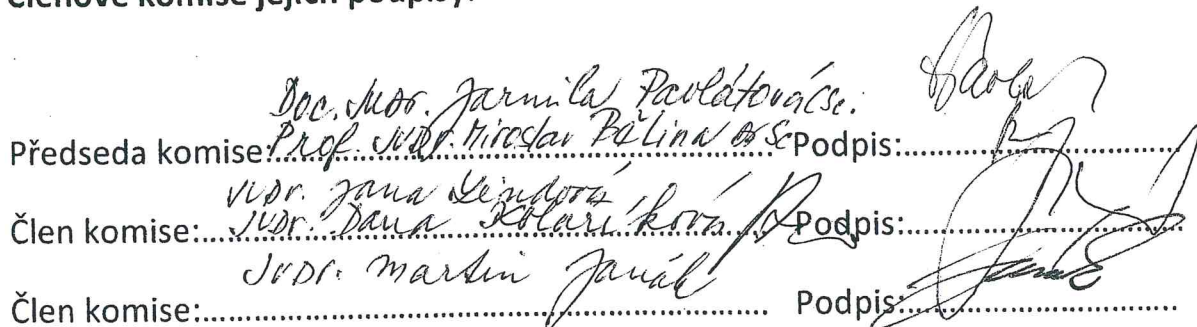 Členové komise jejich podpisy:
Doc. JUDr. Jarmila Pavlátová CSc.
Předseda komise: Prof. JUDr. Miroslav Bělina DrSc Podpis:
JUDr. Jana Lindová
Člen komise: JUDr. Dana Kolaříková Podpis:
JUDr. Martin Janák
Člen komise: Podpis: